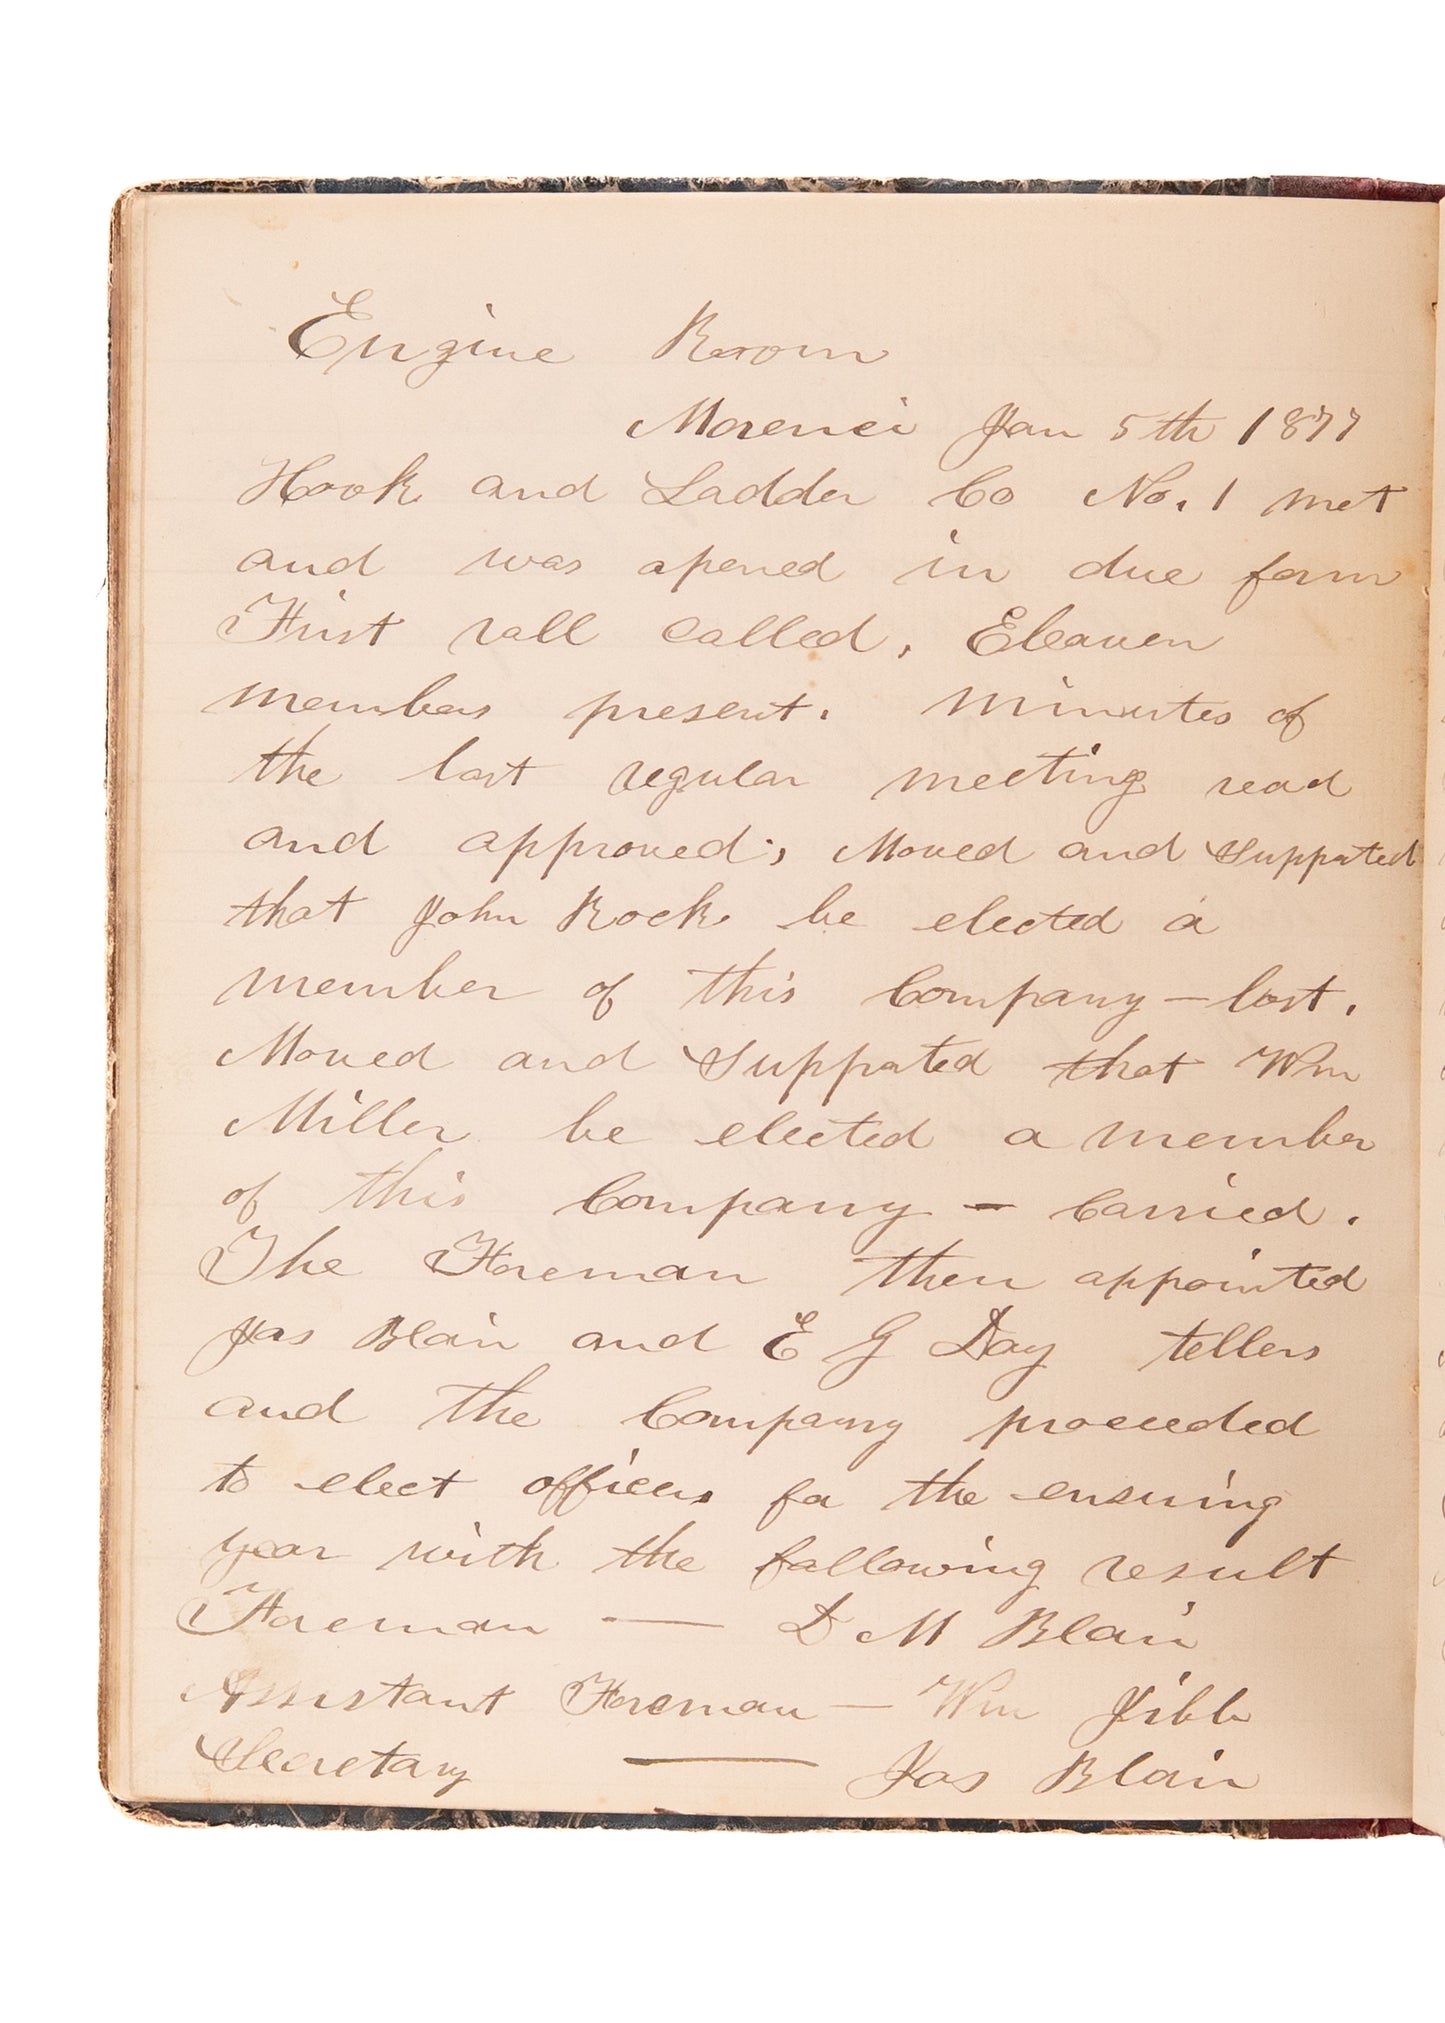 Engine Room
Morenci Jan 5th 1877
Hook and Ladder Co No. 1 met
and was opened in due form
First roll called. Eleaven
members present. Minutes of
the last regular meeting read
and approved. Moved and Supported
that John Rock be elected a
member of this Company — lost.
Moved and Supported that Wm
Miller be elected a member
of this Company — Carried.
The Foreman then appointed
Jas Blair and E G Day tellers
and the Company proceeded
to elect officers for the ensuing
year with the following result
Foreman — D M Blair
Assistant Foreman — Wm
Secretary — Jas Blair